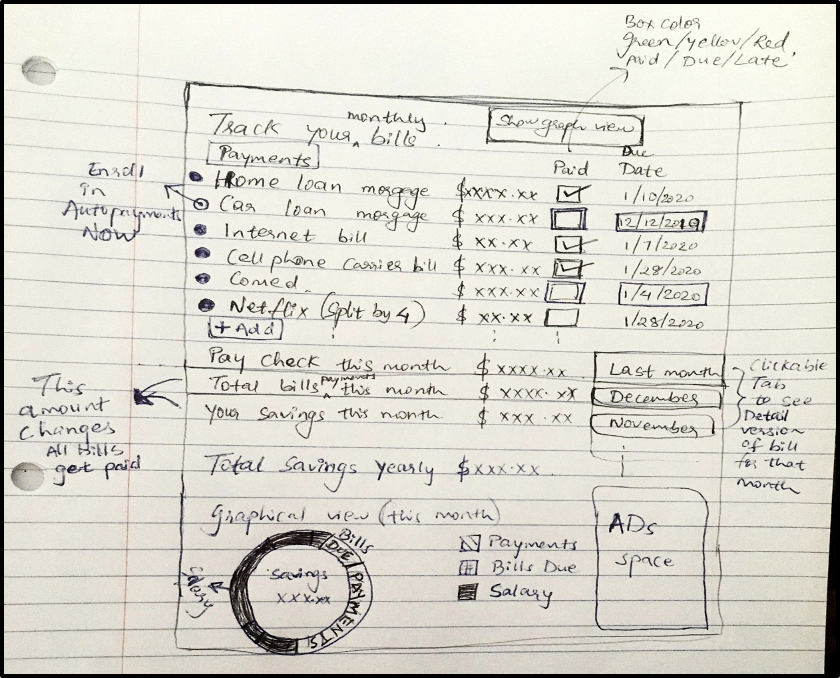 Box color
green/yellow/Red,
paid/Due/Late
Track your monthly bills.
Show graph view
Payments
Paid
Due
Date
Home loan morgage $xxxx.xx 1/10/2020
Car loan morgage $xxx.xx 12/12/2019
Internet bill $xx.xx 1/7/2020
Cell phone carrier bill $xxx.xx 1/28/2020
Comed $xxx.xx 1/4/2020
Netflix (split by 4) $xx.xx 1/28/2020
+ Add
Enroll
in
Autopayments
Now
Pay check this month $xxxx.xx
Total bills payments this month $xxxx.xx
Your savings this month $xxx.xx
Last month
December
November
Clickable
Tab
to see
Detail
version
of bill
for that
month
This
amount
changes
All Bills
get paid
Total savings yearly $xxx.xx
Graphical view (this month)
Bills
DUE
PAYMENTS
Savings
xxx.xx
Salary
Payments
Bills Due
Salary
ADs
space